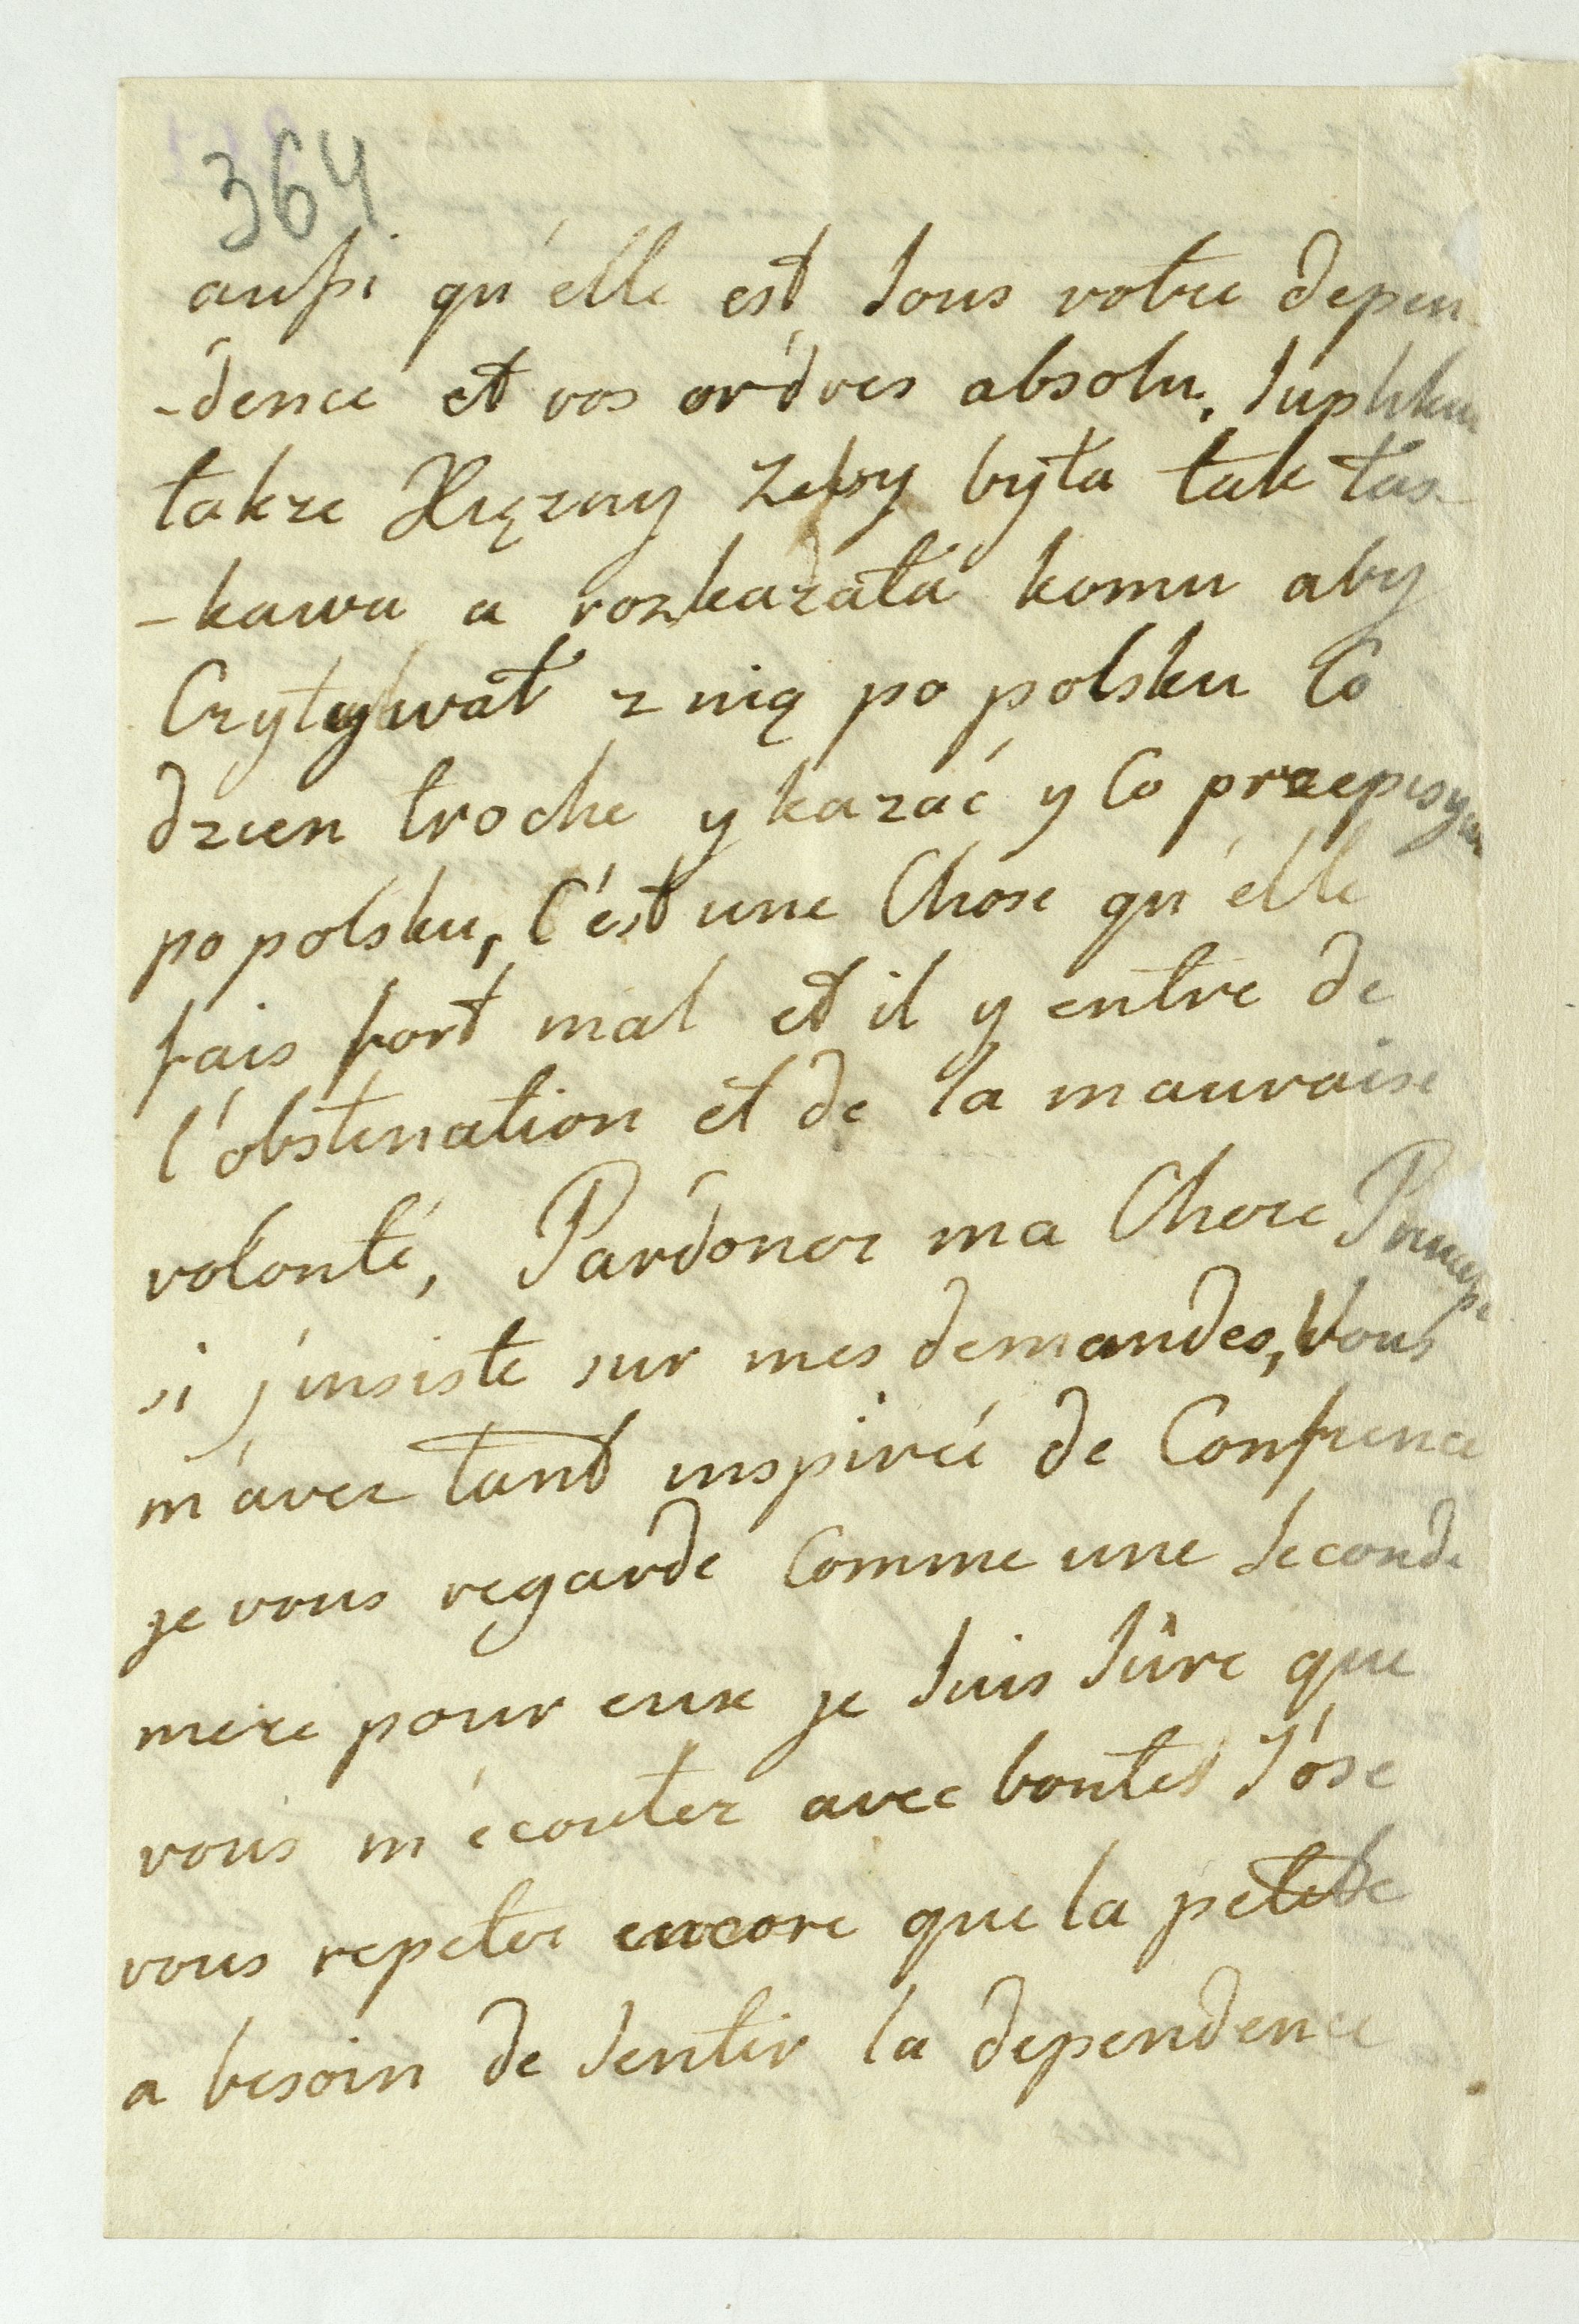 364
aussi qu'elle est sous votre depen
-dence et vos ordres absolu. Suplikuie
takze Xięzny zeby była tak łas
-kawa a rozkazała komu aby
Czytywał z nią po polsku Co
dzien troche y kazać y Co przepisywać
po polsku, C'est une Chose qu'elle
fais fort mal et il y entre de
l'obstenation et de la mauvaise
volonté, Pardonez ma Chere Princesse
si j'insiste sur mes demandes, Vous
m'avez tant inspireé de Confience
je vous regarde Comme une seconde
mere pour eux je suis sûre que
vous m'écoutez avec bontes J'ose
vous repeter encore que la petite
a besoin de sentir la dependence